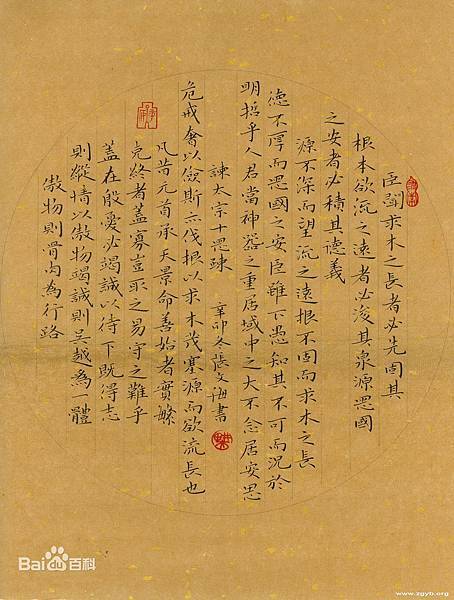 臣聞求木之長者必先固其
根本欲流之遠者必浚其泉源思國
之安者必積其德義
源不深而望流之遠根不固而求木之長
德不厚而思國之安臣雖下愚知其不可而況於
明哲乎人君當神器之重居域中之大不念居安思
諫太宗十思疏 辛卯冬張文海書
危戒奢以儉斯亦伐根以求木茂塞源而欲流長也
凡昔元首承天景命善始者實繁
克終者蓋寡豈取之易守之難乎
蓋在殷憂必竭誠以待下既得志
則縱情以傲物竭誠則吳越為一體
傲物則骨肉為行路
Bai百科
www.zgyb.org